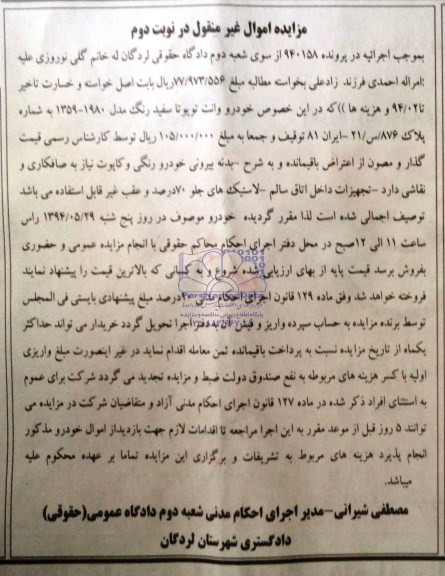 مزایده اموال غیر منقول در نوبت دوم
بموجب اجرائیه در پرونده ۹۴۰۱۵۸ از سوی شعبه دوم دادگاه حقوقی لردگان له خانم گلی نوروزی علیه
امراله احمدی فرزند زادعلی بخواسته مطالبه مبلغ ۷۷/۹۷۳/۵۵۶ریال بابت اصل خواسته و خسارت تاخیر
تا۹۴/۰۲ و هزینه ها ))که در این خصوص خودرو وانت تویوتا سفید رنگ مدل ۱۹۸۰-۱۳۵۹ به شماره
پلاک ۸۷۶/س/۲۱-ایران ۸۱ توقیف و جمعا به مبلغ ۱۰۵/۰۰۰/۰۰۰ ریال توسط کارشناس رسمی قیمت
گذار و مصون از اعتراض باقیمانده و به شرح –بدنه بیرونی خودرو رنگی وکاپوت نیاز به صافکاری و
نقاشی دارد –تجهیزات داخل اتاق سالم –لاستیک های جلو ۷۰درصد و عقب غیر قابل استفاده می باشد
توصیف اجمالی شده است لذا مقرر گردیده خودرو موصوف در روز پنج شنبه ۱۳۹۴/۰۵/۲۹ راس
ساعت ۱۱ الی ۱۲صبح در محل دفتر اجرای احکام محاکم حقوقی با انجام مزایده عمومی و حضوری
بفروش برسد قیمت پایه از بهای ارزیابی شده شروع و به کسانی که بالاترین قیمت را پیشنهاد نمایند
فروخته خواهد شد وفق ماده ۱۲۹ قانون اجرای احکام مدنی درصد مبلغ پیشنهادی بایستی فی المجلس
توسط برنده مزایده به حساب سپرده واریز و فیش آن به دفتر اجرا تحویل گردد خریدار می تواند حداکثر
یکماه از تاریخ مزایده نسبت به پرداخت باقیمانده ثمن معامله اقدام نماید در غیر اینصورت مبلغ واریزی
اولیه با کسر هزینه های مربوطه به نفع صندوق دولت ضبط و مزایده تجدید می گردد شرکت برای عموم
به استثنای افراد ذکر شده در ماده ۱۲۷ قانون اجرای احکام مدنی آزاد و متقاضیان شرکت در مزایده می
توانند ۵ روز قبل از موعد مقرر به این اجرا مراجعه تا اقدامات لازم جهت بازدیداز اموال خودرو مذکور
انجام پذیرد هزینه های مربوط به تشریفات و برگزاری این مزایده تماما بر عهده محکوم علیه
میباشد.
مصطفی شیرانی–مدیر اجرای احکام مدنی شعبه دوم دادگاه عمومی(حقوقی)
دادگستری شهرستان لردگان